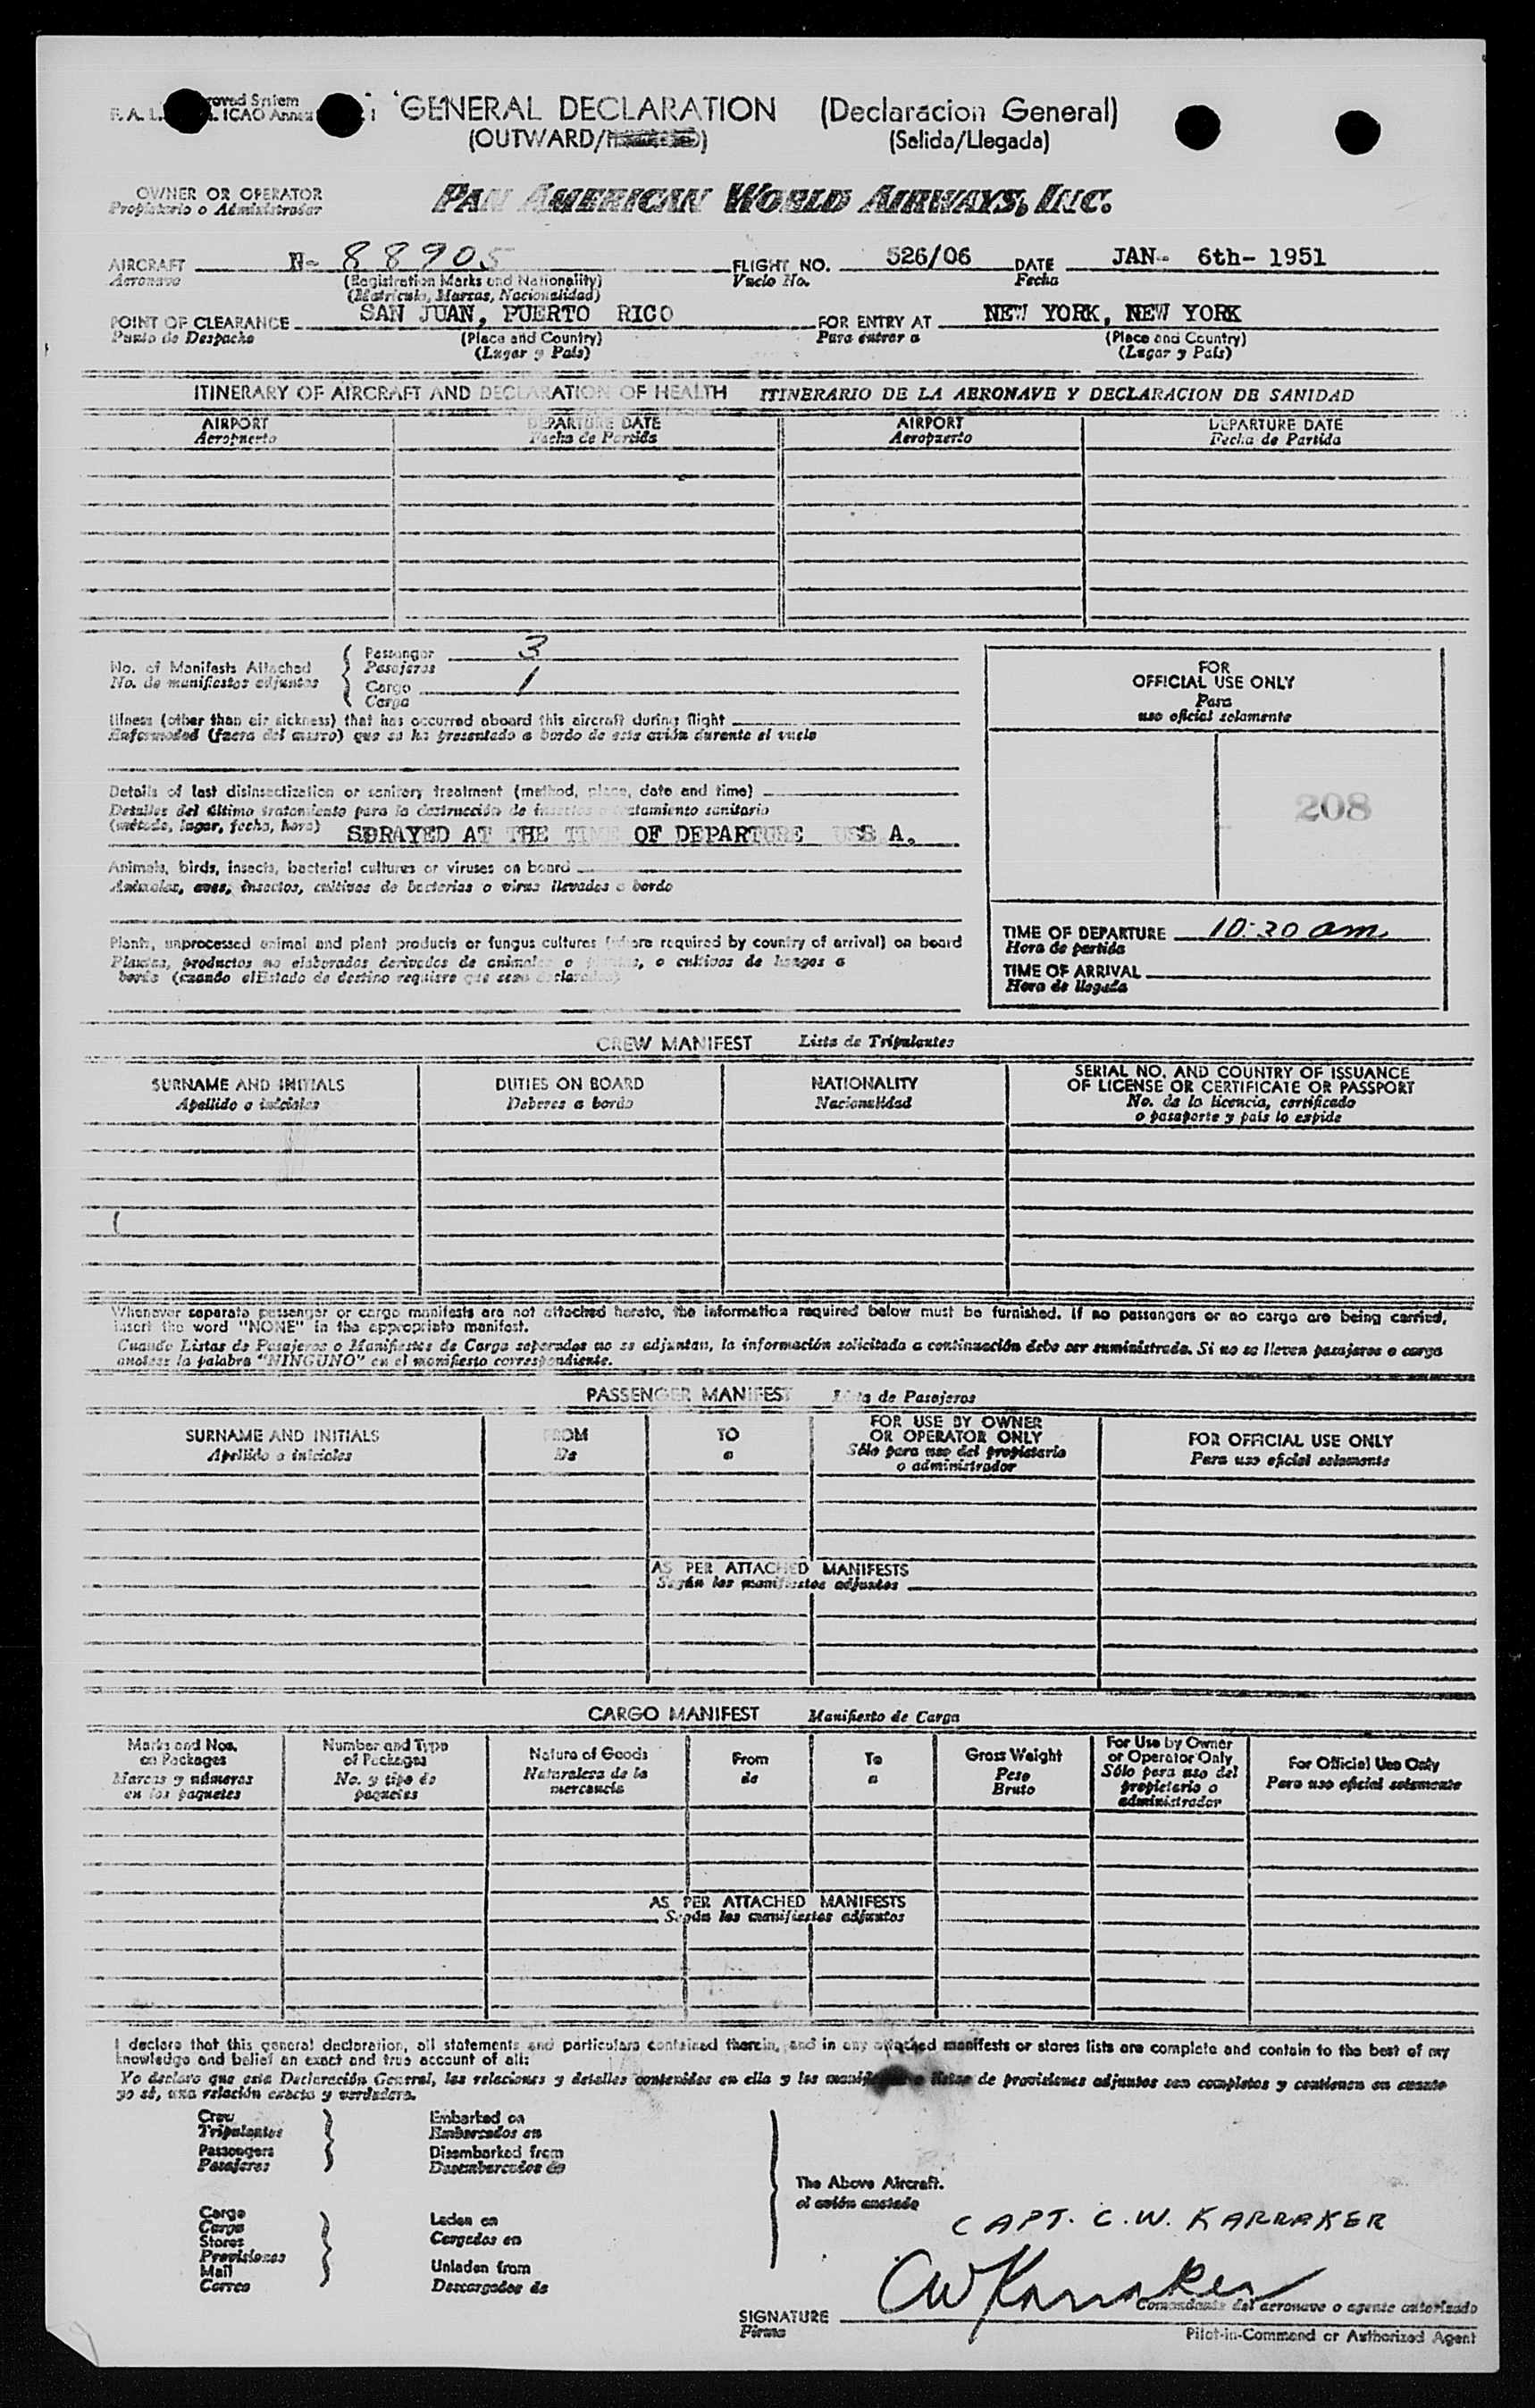 GENERAL DECLARATION (Declaracion General)
(OUTWARD/ ) (Salida/Llegada)
OWNER OR OPERATOR
Propietario o Administrador
PAN AMERICAN WORLD AIRWAYS, INC.
AIRCRAFT N- 88905 FLIGHT NO. 526/06 DATE JAN- 6th- 1951
Aeronave (Registration Marks and Nationality) Vuelo No. Fecha
(Matricula, Marcas, Nacionalidad)
POINT OF CLEARANCE SAN JUAN, PUERTO RICO FOR ENTRY AT NEW YORK, NEW YORK
Punto de Despacho (Place and Country) Para entrar a (Place and Country)
(Lugar y País) (Lugar y País)
ITINERARY OF AIRCRAFT AND DECLARATION OF HEALTH ITINERARIO DE LA AERONAVE Y DECLARACION DE SANIDAD
AIRPORT DEPARTURE DATE AIRPORT DEPARTURE DATE
Aeropuerto Fecha de Partida Aeropuerto Fecha de Partida
No. of Manifests Attached
No. de manifiestos adjuntos
Passenger 3
Pasajeros
Cargo 1
Carga
Illness (other than air sickness) that has occurred aboard this aircraft during flight
Enfermedad (fuera del mareo) que se ha presentado a bordo de este avión durante el vuelo
Details of last disinsectization or sanitary treatment (method, place, date and time)
Detalles del último tratamiento para la destrucción de insectos o tratamiento sanitario
(método, lugar, fecha, hora) SPRAYED AT THE TIME OF DEPARTURE A.
Animals, birds, insects, bacterial cultures or viruses on board
Animales, aves, insectos, cultivos de bacterias o virus llevados a bordo
Plants, unprocessed animal and plant products or fungus cultures (where required by country of arrival) on board
Plantas, productos no elaborados derivados de animales o plantas, o cultivos de hongos a
bordo (cuando elEstado de destino requiere que sean declarados)
FOR
OFFICIAL USE ONLY
Para
uso oficial solamente
208
TIME OF DEPARTURE 10:20 am
Hora de partida
TIME OF ARRIVAL
Hora de llegada
CREW MANIFEST Lista de Tripulantes
SURNAME AND INITIALS DUTIES ON BOARD NATIONALITY SERIAL NO. AND COUNTRY OF ISSUANCE
OF LICENSE OR CERTIFICATE OR PASSPORT
Apellido o iniciales Deberes a bordo Nacionalidad No. de la licencia, certificado
o pasaporte y país lo expide
Whenever separate passenger or cargo manifests are not attached hereto, the information required below must be furnished. If no passengers or no cargo are being carried,
insert the word "NONE" in the appropriate manifest.
Cuando Listas de Pasajeros o Manifiestos de Carga separados no se adjuntan, la información solicitada a continuación debe ser suministrada. Si no se lleven pasajeros o carga
anótese la palabra "NINGUNO" en el manifiesto correspondiente.
PASSENGER MANIFEST Lista de Pasajeros
SURNAME AND INITIALS FROM TO FOR USE BY OWNER
OR OPERATOR ONLY FOR OFFICIAL USE ONLY
Apellido o iniciales De a Sólo para uso del propietario
o administrador Para uso oficial solamente
AS PER ATTACHED MANIFESTS
Según los manifiestos adjuntos
CARGO MANIFEST Manifiesto de Carga
Marks and Nos.
on Packages
Marcas y números
en los paquetes
Number and Type
of Packages
No. y tipo de
paquetes
Nature of Goods
Naturaleza de la
mercancía
From
de
To
a
Gross Weight
Peso
Bruto
For Use by Owner
or Operator Only
Sólo para uso del
propietario o
administrador
For Official Use Only
Para uso oficial solamente
AS PER ATTACHED MANIFESTS
Según los manifiestos adjuntos
I declare that this general declaration, all statements and particulars contained therein, and in any attached manifests or stores lists are complete and contain to the best of my
knowledge and belief an exact and true account of all:
Yo declaro que esta Declaración General, las relaciones y detalles contenidos en ella y los listas de provisiones adjuntos son completos y contienen en cuanto
yo sé, una relación exacta y verdadera.
Crew
Tripulantes
Passengers
Pasajeros
Embarked on
Embarcados en
Disembarked from
Desembarcados de
Cargo
Carga
Stores
Provisiones
Mail
Correo
Laden on
Cargados en
Unladen from
Descargados de
The Above Aircraft.
el avión anotado
CAPT. C.W. KARRAKER
CW Karraker
Comandante del aeronave o agente autorizado
SIGNATURE
Firma
Pilot-in-Command or Authorized Agent